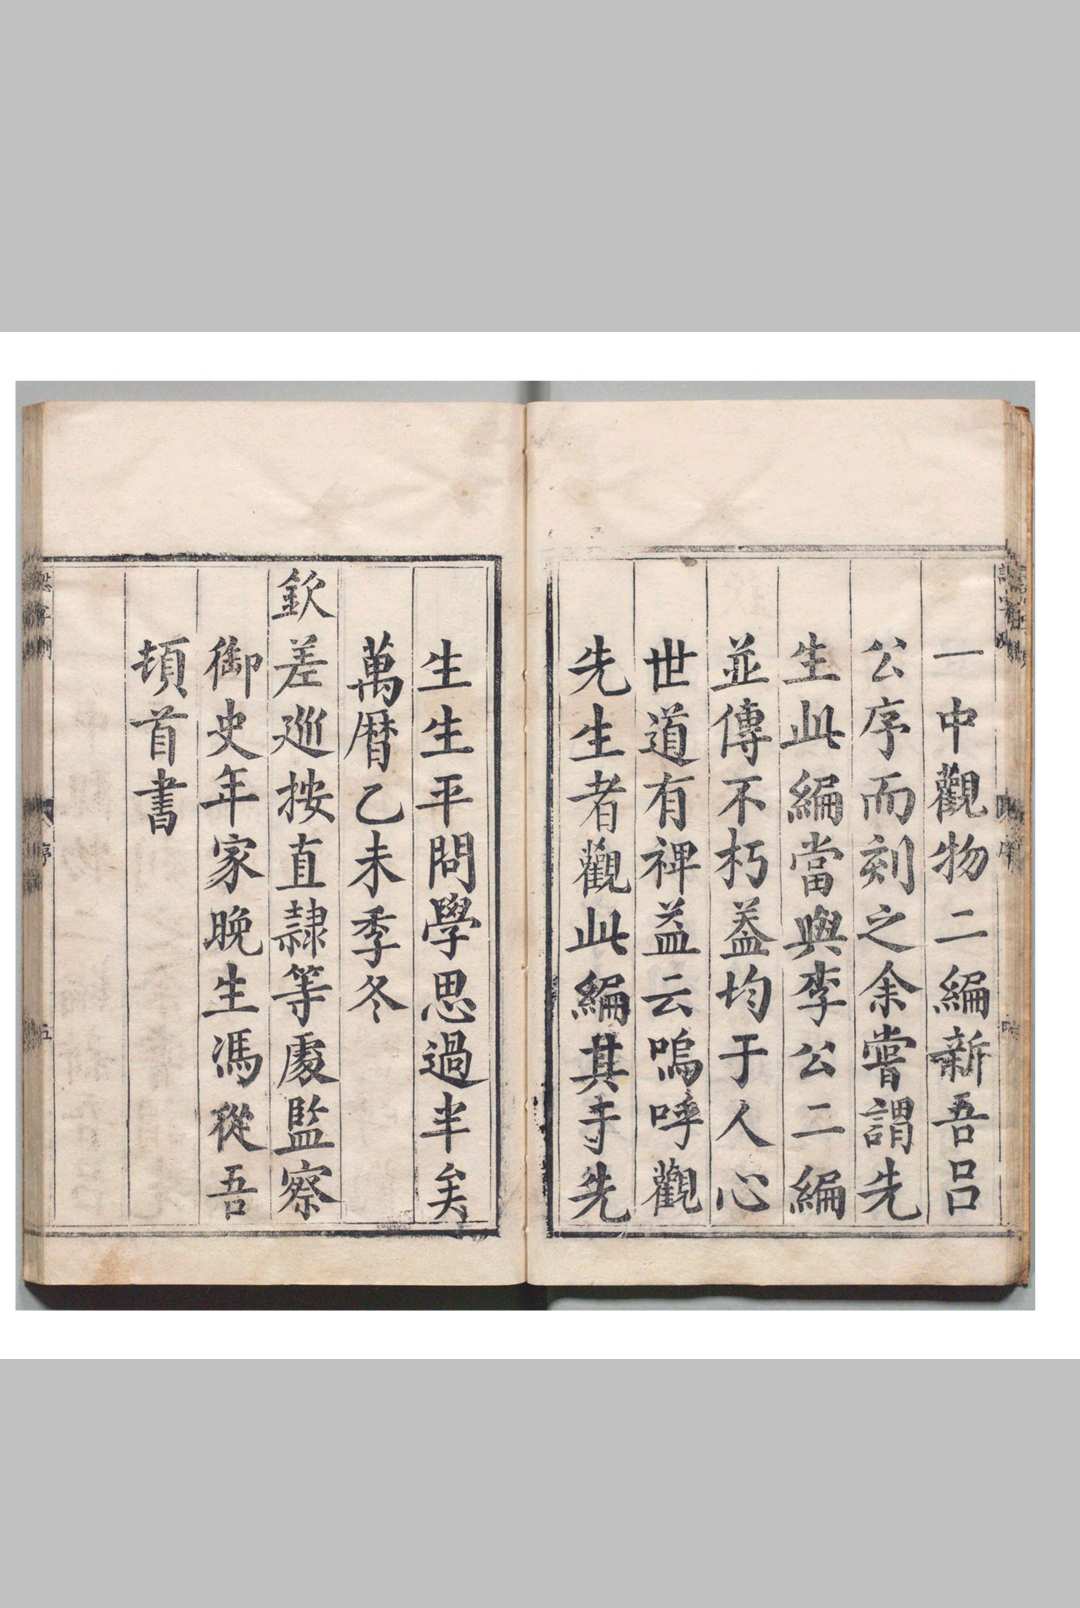 一中觀物二編新吾呂
公序而刻之余嘗謂先
生此編當與李公二編
並傳不朽葢均于人心
世道有裨益云嗚呼觀
先生者觀此編其于先
生生平問學思過半矣
萬曆乙未季冬
欽差巡按直隷等處監察
御史年家晚生馮從吾
頓首書
序
五